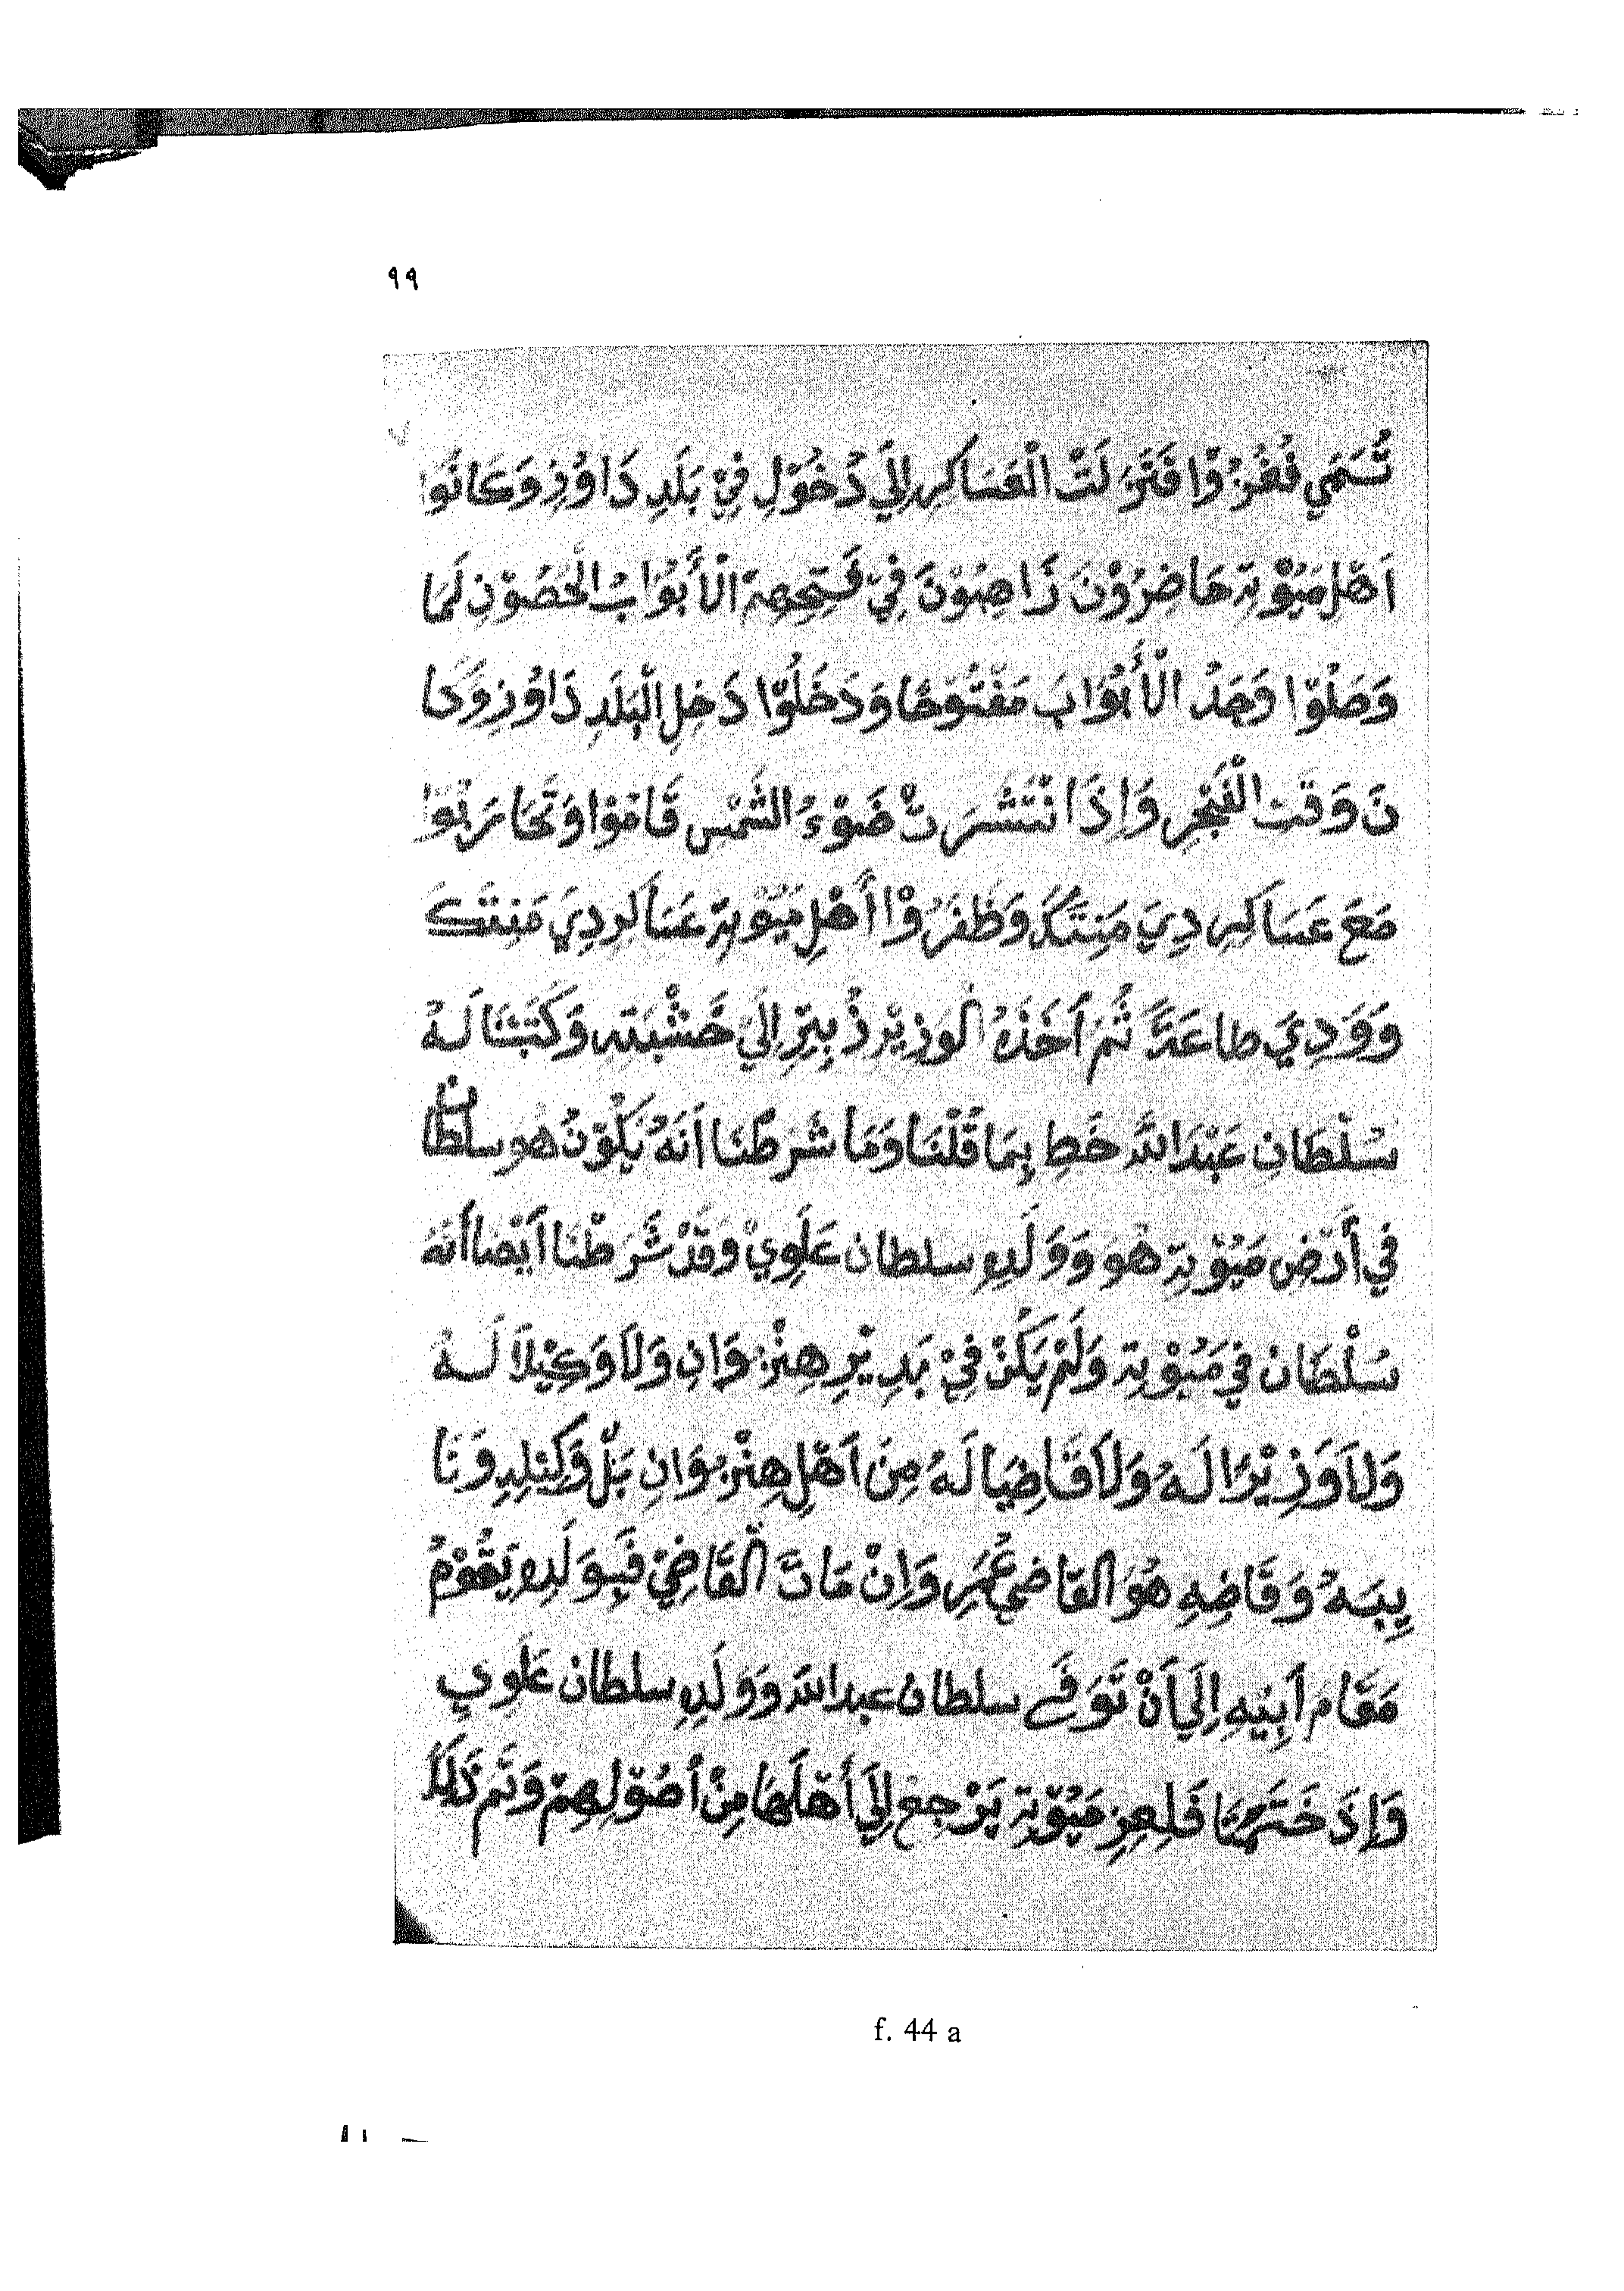 ٩٩
تُسَمَي فُغُرُوْا فَنَزَلَتْ الْعَسَاكِرِ اِلَيَ دُخُوْلِ فِيْ بَلَدِ دَاوُزِ وَكَانُوا
اَهْلِ مَيُوْتِهِ حَاضِرُوْنَ ذَاهِبُوْنَ فِيْ فَتِحِهِة الْأَبُوَابُ الْحُصُوْنِ لَمَا
وَصَلُوْا وَجَدُ الْأَبُوَابَ مَفْتُوْحًا وَدَخَلُوْا دَخِلِ الْبَلَدِ دَاوُزِ وَكَا
نَ وَقت الْفَجْرِ وَاِذَا نْتَشَرَتْ ضَوْءُ الشَمْسِ قَامُوْا وَتَحَارَبُوْا
مَعَ عَسَاكِرِ دِيَ مَنِتَكَ وَظَفَرُوْا أَهْلِ مَيُوْتِهِ عَسَاكِرِ دِيَ مَنِتَكَ
وَوَدِيَ طاعَةً ثُمَ اَخَذَهُ الوَزِيْر ذُبِيَرِ اِلَيَ خَشْبَته وَكَتَبْنَا لَهُ
سُلْطَانِ عَبْدَ اللَّهِ خَطِ بِمَا قُلْنَا وَمَا شَرَطْنَا اَنَهُ يَكُوْنُ هُو سلطان
في أَرْضِ مَيُوْتِه هُوَ وَوَلَدِهِ سلطان عَلَوِيْ وَقَدْ شَرَطْنَا اَيْضًا اَنَهُ
سُلْطَان في مَيُوْتِه وَلَمْ يَكُنْ فِيْ بَدِيْرِ هِنْزُوَانِ وَلَا وَكِيْلًا لَهُ
وَلَا وَزِيْرًا لَهُ وَلَا قَاضِيَا لَهُ مِنَ اَهْلِ هِنْزُوَانِ بَلْ وَكِيْلِهِ وَنَا
يِبَهُ وَقَاضِهِ هُوَ القَاضي عُمَرِ وَاِنْ مَاتَ الْقَاضِيْ فَبِوَلَدِهِ يَقُوْمُ
مَقَامَ اَبِيْهِ اِلَيَ اَنْ تَوَفَى سلطان عبد الله وَوَلَدِهِ سلطان عَلَوِي
وَاِذَ خَتَرَهُمَا فَلِعِزِ مَيُوْتِه يَرْجِعِ اِلَيَ أَهْلَهَا مِنْ اَصُوْلِهِمْ وَتَم ذَلِكَ
f. 44 a